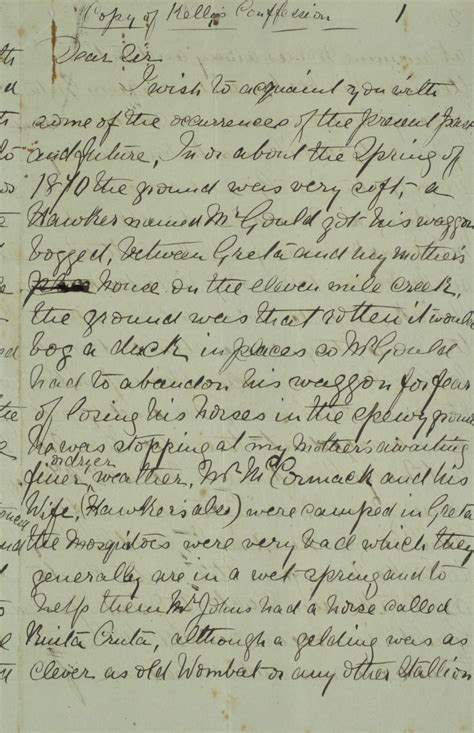 Copy of Kelly's Confession 1
Dear Sir
I wish to acquaint you with
some of the occurrences of the present past
and future, In or about the Spring of
1870 the ground was very soft, a
Hawker named Mr Gould got his waggon
bogged, between Greta and my mother's
house on the eleven mile creek,
the ground was that rotten it would
bog a duck in places so Mr Gould
had to abandon his waggon for fear
of losing his horses in the spewy ground
he was stopping at my mothers awaiting
finer or dryer weather, Mr McCormack and his
Wife, (Hawkers also) were camped in Greta
the mosquitoes were very bad which they
generally are in a wet spring and to
help them Mr Johns had a horse called
Ruita Cruta, although a gelding was as
clever as old Wombat or any other Stallion